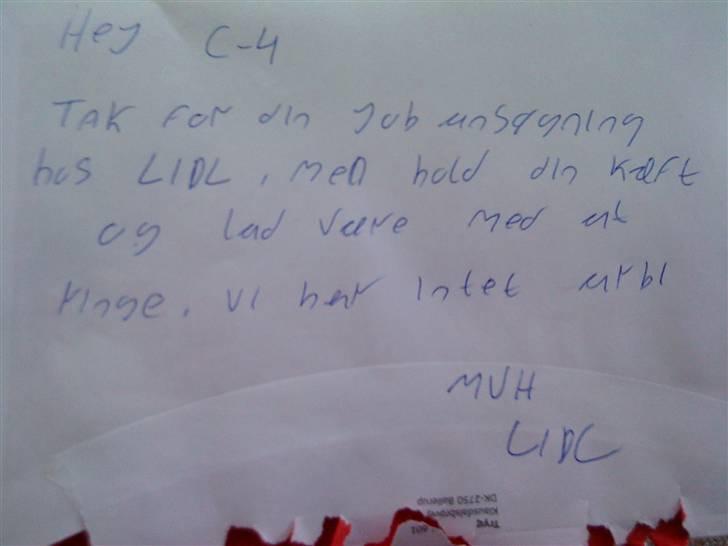 Hey C-4
TAK FOR din Job ansøgning
hos LIDL, men hold din Kæft
og lad være med at
ringe. vi har intet arbi
MVH
LIDL
Tryg
601
Klausdalsbrovej
DK-2750 Ballerup